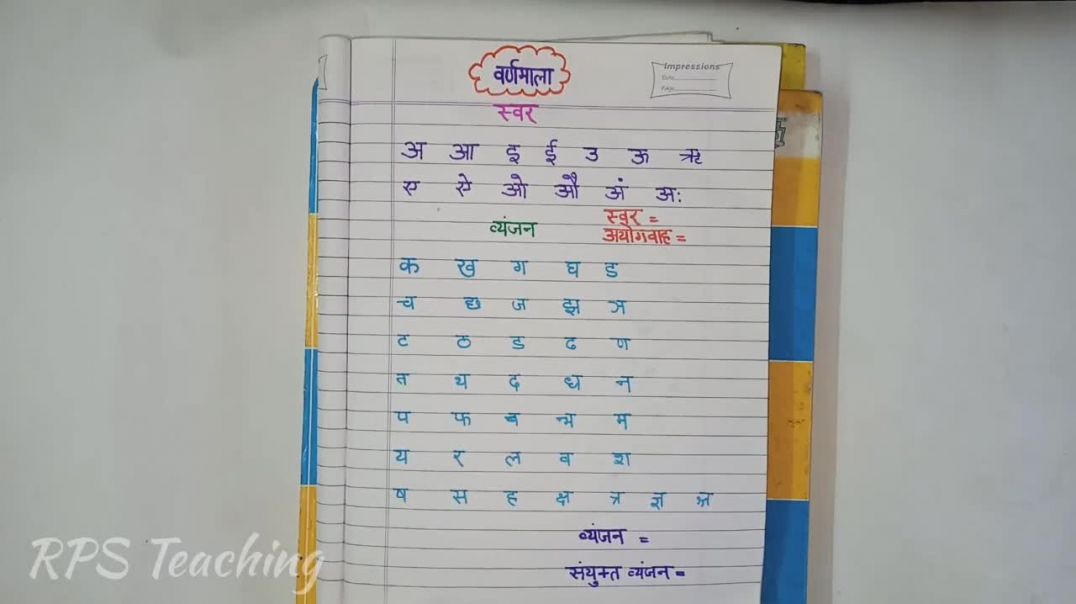 वर्णमाला
Impressions
स्वर
अ आ इ ई उ ऊ ऋ
ए ऐ ओ औ अं अः
स्वर =
व्यंजन
अयोगवाह =
क ख ग घ ङ
च छ ज झ ञ
ट ठ ड ढ ण
त थ द ध न
प फ ब भ म
य र ल व श
ष स ह क्ष त्र ज्ञ श्र
व्यंजन =
संयुक्त व्यंजन =
RPS Teaching